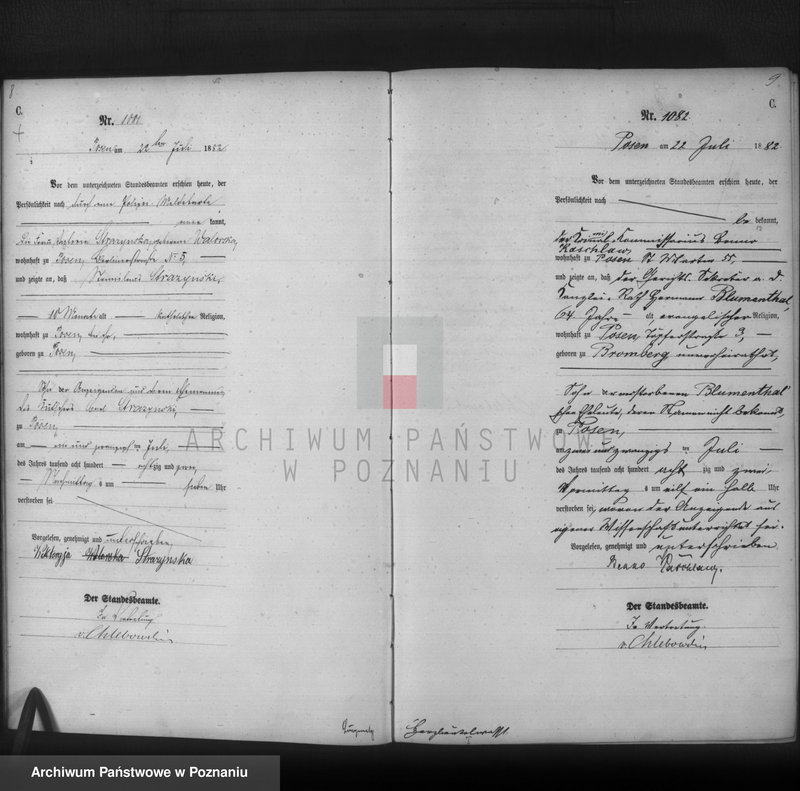 8
C.
Nr. 1081
Posen am 22ten Juli 1882
Vor dem unterzeichneten Standesbeamten erschien heute, der
Persönlichkeit nach durch eine Polizei Meldekarte
kannt,
Strazynska, geborene Walorska,
wohnhaft zu Posen, Berlinerstraße No 5,
und zeigte an, daß Stanislaus Strazynski,
10 Monate alt, katholischer Religion,
wohnhaft zu Posen bei ihr,
geboren zu Posen,
Sohn der Anzeigenden und deren Ehemannes
des Strazynski,
zu Posen,
am ein und zwanzigsten Juli
des Jahres tausend acht hundert achtzig und zwei,
Nachmittag s um sieben Uhr
verstorben sei
Vorgelesen, genehmigt und unterschrieben
Wiktoryja Walorska Strazynska
Der Standesbeamte.
In Vertretung
v. Chlebowski
9
C.
Nr. 1082
Posen am 22 Juli 1882
Vor dem unterzeichneten Standesbeamten erschien heute, der
Persönlichkeit nach
be kannt,
der Kommissarius Benno
Kaschlaw
wohnhaft zu Posen St Martin 55,
und zeigte an, daß der Gerichts Sekretär a. D.
Kanzlei-Rath Hermann Blumenthal,
64 Jahre alt, evangelischer Religion,
wohnhaft zu Posen, Töpferstraße 3,
geboren zu Bromberg unverheirathet,
Sohn der verstorbenen Blumenthal
schen Eheleute, deren Namen nicht bekannt,
zu Posen,
am zwei und zwanzigsten Juli
des Jahres tausend acht hundert achtzig und zwei,
Vormittag s um elf ein halb Uhr
verstorben sei, wovon der Anzeigende aus
eigener Wissenschaft unterrichtet sei.
Vorgelesen, genehmigt und unterschrieben
Benno Kaschlaw.
Der Standesbeamte.
In Vertretung
v. Chlebowski
ARCHIWUM PAŃSTWOWE
W POZNANIU
Archiwum Państwowe w Poznaniu